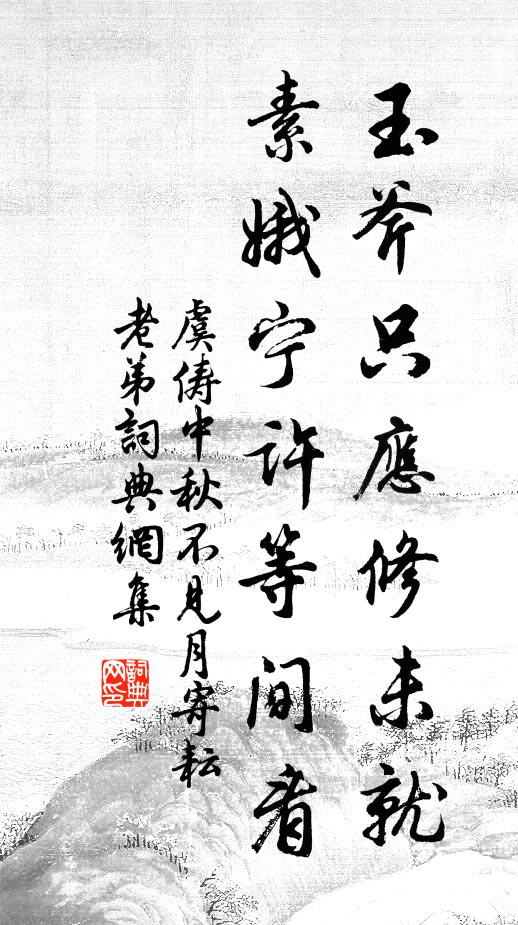 玉斧只應修未就
素娥宁許等閒看
虞儔中秋不見月寄耘
老弟詞典網集
詞典网印